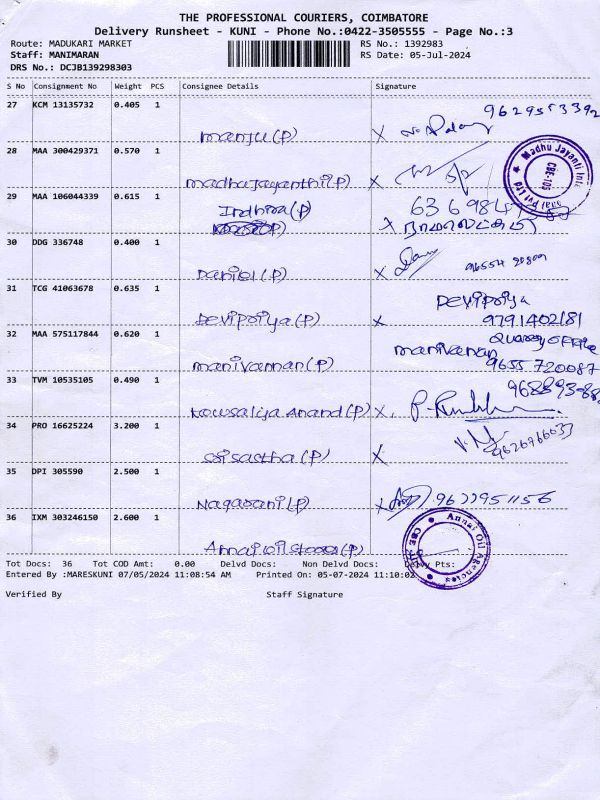 THE PROFESSIONAL COURIERS, COIMBATORE
Delivery Runsheet - KUNI - Phone No.:0422-3505555 - Page No.:3
Route: MADUKARI MARKET RS No.: 1392983
Staff: MANIMARAN RS Date: 05-Jul-2024
DRS No.: DCJB139298303
S No Consignment No Weight PCS Consignee Details Signature
27 KCM 13135732 0.405 1
manju(P)
28 MAA 300429371 0.570 1
madhajayanthi(P)
Madhu Jayanti CBE-105
29 MAA 106044339 0.615 1
Indhira(P)
30 DDG 336748 0.400 1
Daniel(P)
31 TCG 41063678 0.635 1 Devipriya
Devipriya(P) 9791402181
32 MAA 575117844 0.620 1 Quarry office
manivannan(P) manivanan 9655720087
33 TVM 10535105 0.490 1
kowsaliya Anand(P)
34 PRO 16625224 3.200 1
Sri sastha(P) 9626966033
35 DPI 305590 2.500 1
Nagarani(P) 9677951156
36 IXM 303246150 2.600 1
Annai oil stores(P)
Annai Oil Agencies CBE
Tot Docs: 36 Tot COD Amt: 0.00 Delvd Docs: Non Delvd Docs: Pts:
Entered By :MARESKUNI 07/05/2024 11:08:54 AM Printed On: 05-07-2024 11:10:02
Verified By Staff Signature